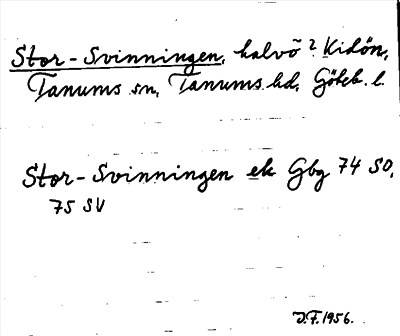 Stor-Svinningen, halvö ? Kidön,
Tanums sn, Tanums hd, Göteb. l.
Stor-Svinningen ek Gbg 74 SO,
75 SV
D.F. 1956.